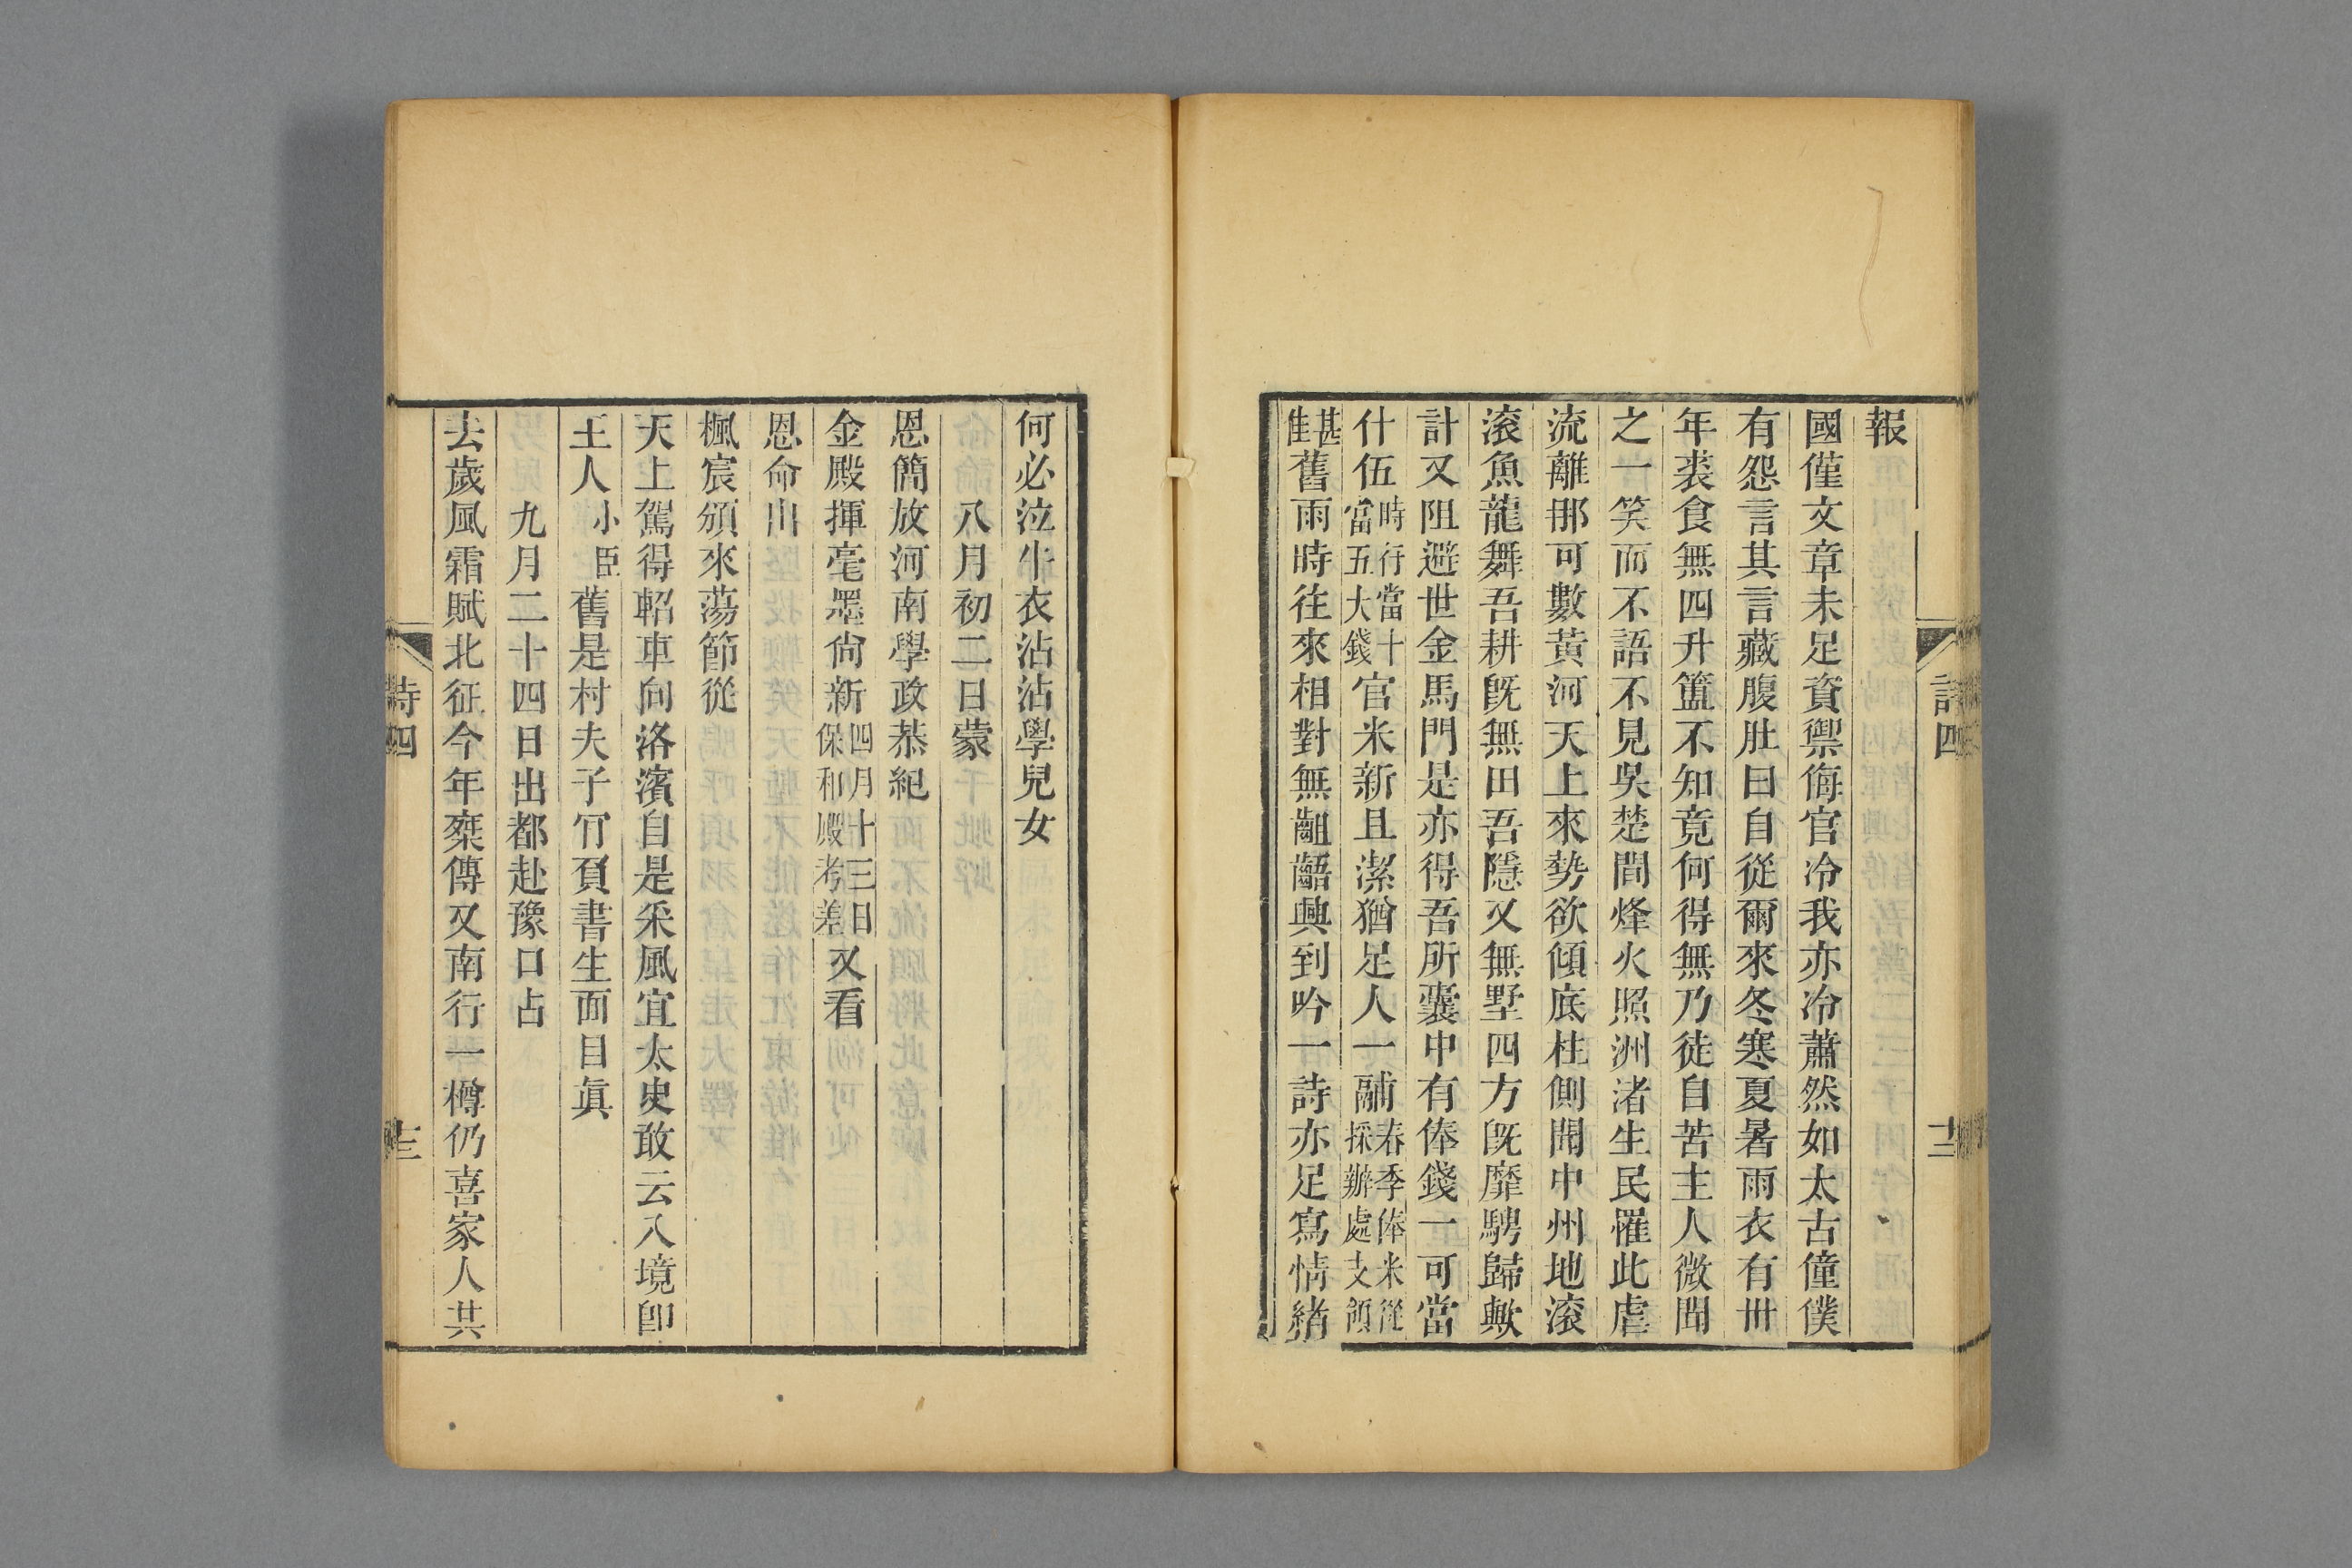 報
國僅文章未足資禦侮官冷我亦冷蕭然如太古僮僕
有怨言其言藏腹肚曰自從爾來冬寒夏暑雨衣有卅
年裘食無四升簠不知竟何得無乃徒自苦主人微聞
之一笑而不語不見吳楚間烽火照洲渚生民罹此虐
流離那可數黃河天上來勢欲傾底柱側聞中州地滚
滚魚龍舞吾耕旣無田吾隱又無墅四方旣靡騁歸歟
計又阻避世金馬門是亦得吾所囊中有俸錢一可當
什伍時行當十當五大錢官米新且潔猶足人一鬴春季俸米從採辦處支領
甚佳舊雨時往來相對無齟齬興到吟一詩亦足寫情緖
詩四
十二
何必泣牛衣沾沾學兒女
八月初二日蒙
恩簡放河南學政恭紀
金殿揮毫墨尙新四月十三日保和殿考差又看
恩命出
楓宸頒來蕩節從
天上駕得軺車向洛濱自是采風宜太史敢云入境卽
王人小臣舊是村夫子冐頁書生面目眞
九月二十四日出都赴豫口占
去歲風霜賦北征今年槩傳又南行一樽仍喜家人共
詩四
十三